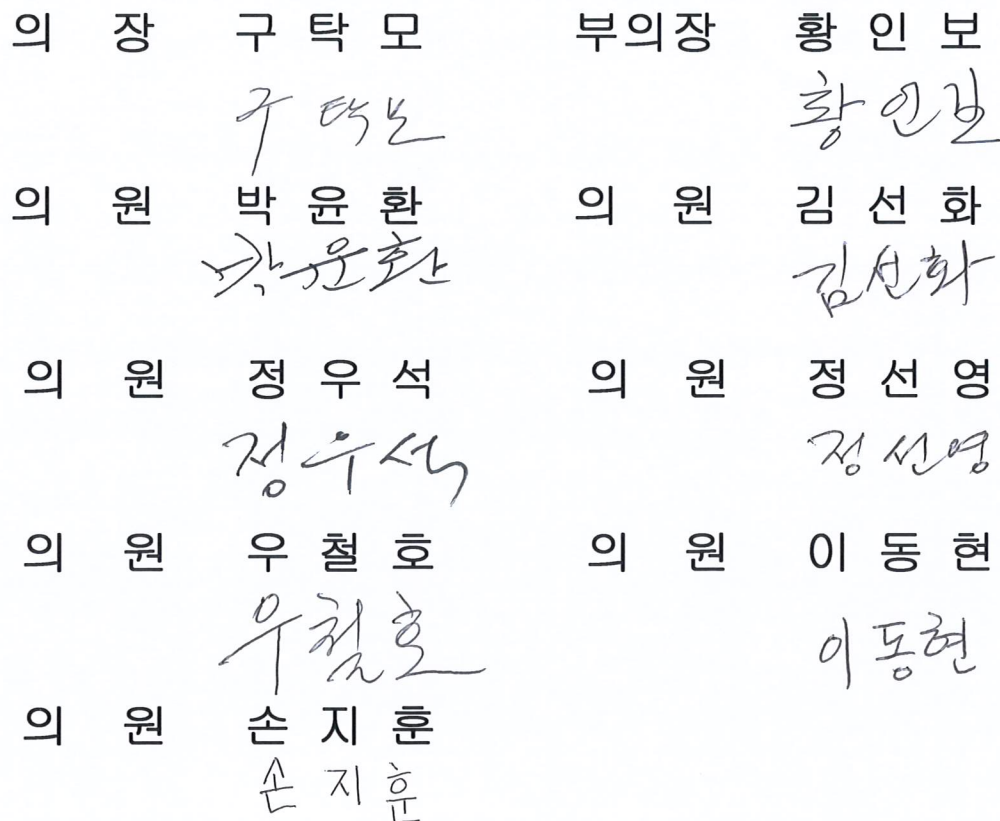 의 장 구 탁 모 부의장 황 인 보
구 탁 모 황 인 보
의 원 박 윤 환 의 원 김 선 화
박 윤 환 김 선 화
의 원 정 우 석 의 원 정 선 영
정 우 석 정 선 영
의 원 우 철 호 의 원 이 동 현
우 철 호 이 동 현
의 원 손 지 훈
손 지 훈